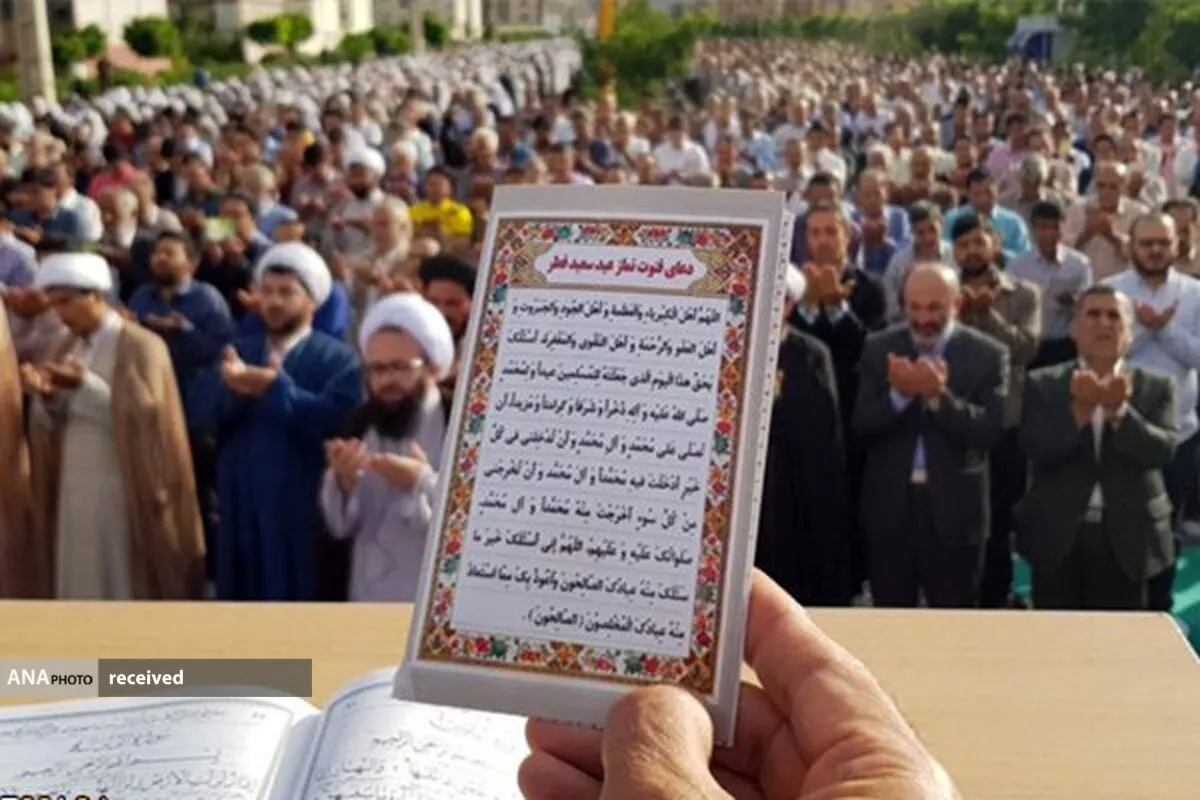 دعای قنوت نماز عید سعید فطر
اللّهُمَّ اَهْلَ الْكِبْرِیاءِ وَالْعَظَمَةِ وَ اَهْلَ الْجُودِ وَالْجَبَرُوتِ وَ
اَهْلَ الْعَفْوِ وَالرَّحْمَةِ وَ اَهْلَ التَّقْوی وَالْمَغْفِرَةِ اَسْئَلُکَ
بِحَقِّ هذَا الْیَوْمِ الَّذی جَعَلْتَهُ لِلْمُسْلِمینَ عیداً وَ لِمُحَمَّدٍ
صَلَّی اللهُ عَلَیْهِ وَ آلِهِ ذُخْراً وَ شَرَفاً وَ کَرامَتاً وَ مَزیداً، اَنْ
تُصَلِّیَ عَلی مُحَمَّدٍ وَ آلِ مُحَمَّدٍ وَ اَنْ تُدْخِلَنی فی کُلِّ
خَیْرٍ اَدْخَلْتَ فیهِ مُحَمَّداً وَ آلَ مُحَمَّدٍ وَ اَنْ تُخْرِجَنی
مِنْ کُلِّ سُوءٍ اَخْرَجْتَ مِنْهُ مُحَمَّداً وَ آلَ مُحَمَّدٍ،
صَلَواتُکَ عَلَیْهِ وَ عَلَیْهِمْ، اللّهُمَّ اِنّی اَسْئَلُکَ خَیْرَ ما
سَئَلَکَ مِنْهُ عِبادُکَ الصّالِحُونَ وَ اَعُوذُ بِکَ مِمَّا اسْتَعاذَ
مِنْهُ عِبادُکَ الْمُخْلِصُونَ (الصّالِحُونَ).
ANA PHOTO received